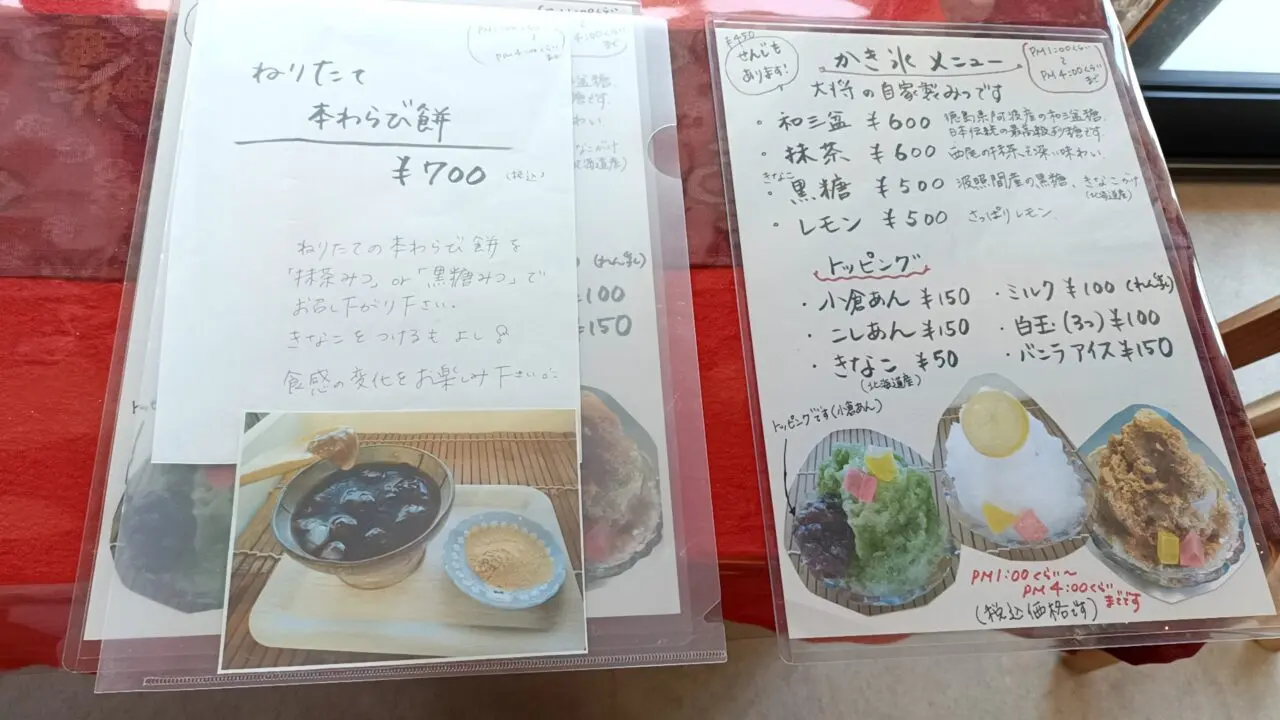 ねりたて
本わらび餅
¥700 (税込)
ねりたての本わらび餅を
「抹茶みつ」or「黒糖みつ」で
お召し下がり下さい。
きなこをつけるもよし
食感の変化をお楽しみ下さい
PM1:00くらい
PM4:00くらい
まで
(れん乳)
100
150
¥450
せんじも
あります!
かき氷 メニュー
PM1:00くらい
〜
PM4:00くらい
まで
大将の自家製みつです
・和三盆 ¥600 徳島県阿波産の和三盆糖
日本伝統の最高級砂糖です
・抹茶 ¥600 西尾の抹茶 深い味わい
きなこ
・黒糖 ¥500 波照間産の黒糖、きなこがけ
(北海道産)
・レモン ¥500 さっぱりレモン
トッピング
・小倉あん ¥150 ・ミルク ¥100 (れん乳)
・こしあん ¥150 ・白玉(3つ) ¥100
・きなこ ¥50 ・バニラアイス ¥150
(北海道産)
トッピングです(小倉あん)
PM1:00くらい〜
PM4:00くらい
までです
(税込価格です)